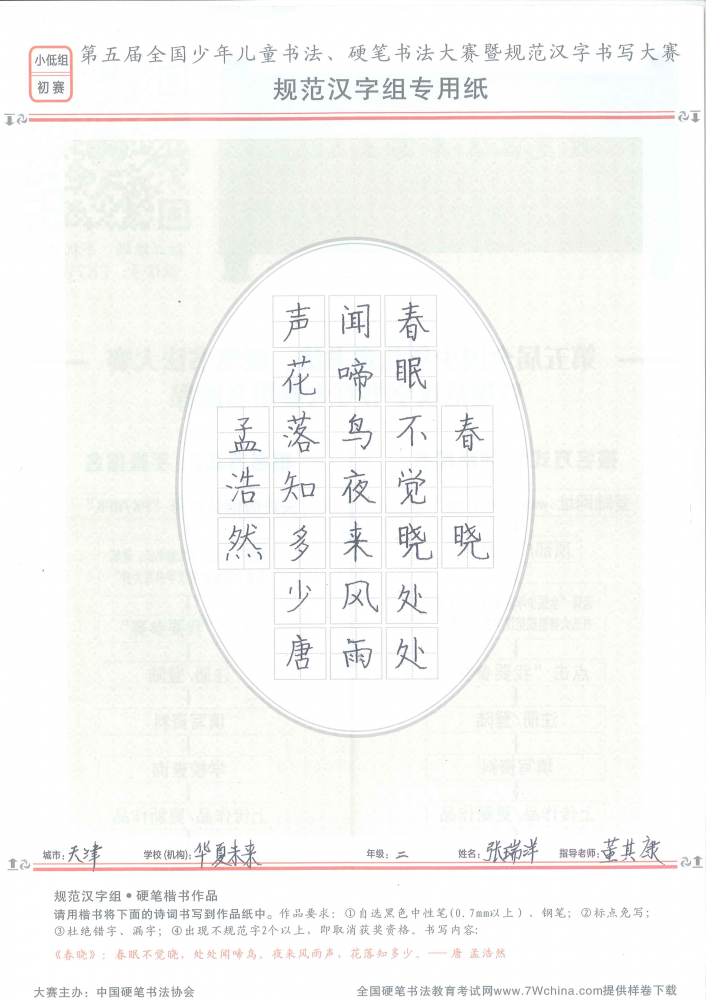 小低组
初赛
第五届全国少年儿童书法、硬笔书法大赛暨规范汉字书写大赛
规范汉字组专用纸
春晓
春眠不觉晓处处
闻啼鸟夜来风雨
声花落知多少唐
孟浩然
城市:天津 学校(机构):华夏未来 年级:二 姓名:张瑞洋 指导老师:董其康
规范汉字组●硬笔楷书作品
请用楷书将下面的诗词书写到作品纸中。作品要求:①自选黑色中性笔(0.7mm以上)、钢笔;②标点免写;
③杜绝错字、漏字;④出现不规范字2个以上,即取消获奖资格。书写内容:
《春晓》:春眠不觉晓,处处闻啼鸟。夜来风雨声,花落知多少。——唐 孟浩然
大赛主办:中国硬笔书法协会
全国硬笔书法教育考试网www.7Wchina.com提供样卷下载